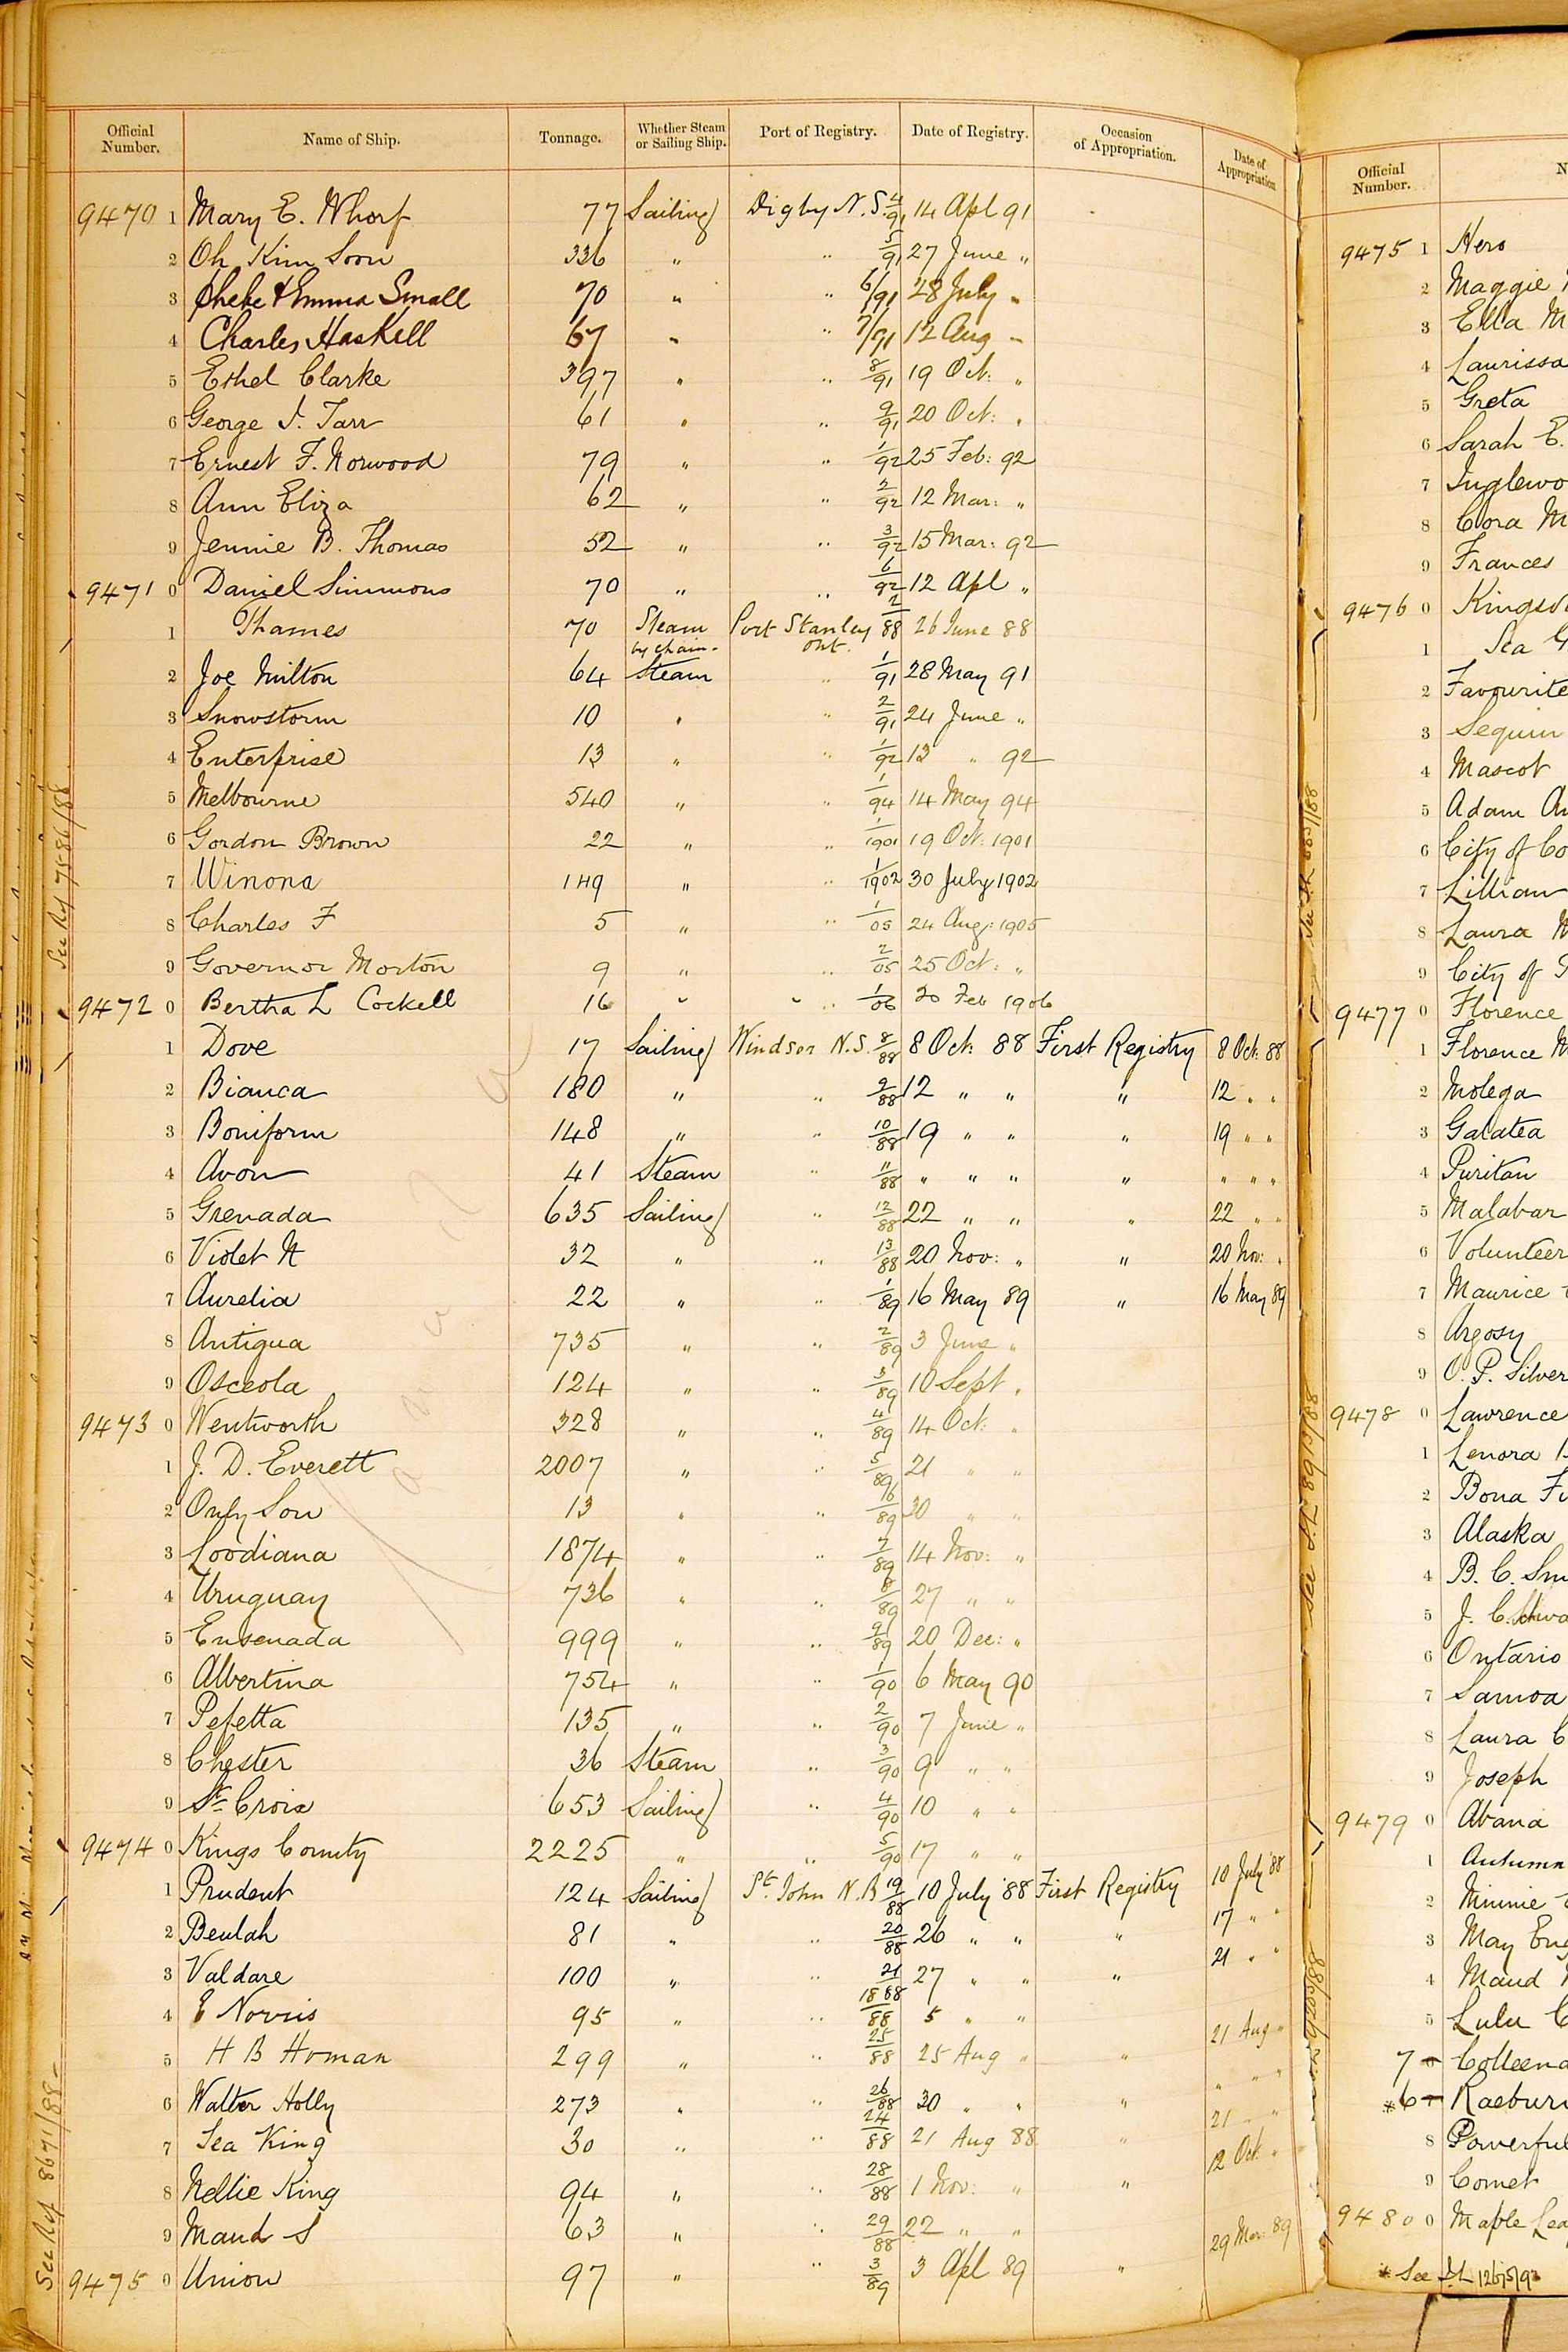 Official Number. Name of Ship. Tonnage. Whether Steam or Sailing Ship. Port of Registry. Date of Registry. Occasion of Appropriation. Date of Appropriation
9470 1 Mary E. Whorf 77 Sailing Digby N.S. 4/91 14 Apl 91
2 Oh Kim Soon 336 " " 5/91 27 June "
3 Phebe & Emma Small 70 " " 6/91 28 July "
4 Charles Haskell 67 " " 7/91 12 Aug "
5 Ethel Clarke 397 " " 8/91 19 Oct: "
6 George J. Tarr 61 " " 9/91 20 Oct: "
7 Ernest F. Norwood 79 " " 1/92 25 Feb: 92
8 Ann Eliza 62 " " 2/92 12 Mar: "
9 Jennie B. Thomas 52 " " 3/92 15 Mar: 92
9471 0 Daniel Simmons 70 " " 6/92 12 Apl "
1 Thames 70 Steam Port Stanley 2/88 26 June 88
by chain. Ont.
2 Joe Milton 64 Steam " 1/91 28 May 91
3 Snowstorm 10 " " 2/91 24 June "
4 Enterprise 13 " " 1/92 13 " 92
5 Melbourne 540 " " 1/94 14 May 94
6 Gordon Brown 22 " " 1/1901 19 Oct: 1901
7 Winona 149 " " 1/1902 30 July 1902
8 Charles F 5 " " 1/05 24 Aug: 1905
9 Governor Morton 9 " " 2/05 25 Oct: "
9472 0 Bertha L Cockell 16 " " 1/06 20 Feb 1906
1 Dove 17 Sailing Windsor N.S. 8/88 8 Oct: 88 First Registry 8 Oct: 88
2 Bianca 180 " " 9/88 12 " " " 12 " "
3 Boniform 148 " " 10/88 19 " " " 19 " "
4 Avon 41 Steam " 11/88 " " " " " " "
5 Grenada 635 Sailing " 12/88 22 " " " 22 " "
6 Violet N 32 " " 13/88 20 Nov: " " 20 Nov: "
7 Aurelia 22 " " 1/89 16 May 89 " 16 May 89
8 Antigua 735 " " 2/89 3 June "
9 Osceola 124 " " 3/89 10 Sept "
9473 0 Wentworth 328 " " 4/89 14 Oct: "
1 J. D. Everett 2007 " " 5/89 21 " "
2 Only Son 13 " " 6/89 30 " "
3 Loodiana 1874 " " 7/89 14 Nov: "
4 Uruguay 736 " " 8/89 27 " "
5 Ensenada 999 " " 9/89 20 Dec: "
6 Albertina 754 " " 1/90 6 May 90
7 Pefetta 135 " " 2/90 7 June "
8 Chester 36 Steam " 3/90 9 " "
9 St Croix 653 Sailing " 4/90 10 " "
9474 0 Kings County 2225 " " 5/90 17 " "
1 Prudent 124 Sailing St. John N.B 19/88 10 July '88 First Registry 10 July '88
2 Beulah 81 " " 20/88 26 " " " 17 " "
3 Valdare 100 " " 21/88 27 " " " 21 " "
4 E Norris 95 " " 18/88 5 " "
5 H B Homan 299 " " 25/88 25 Aug " " 21 Aug "
6 Walter Holly 273 " " 26/88 30 " " " " " "
7 Sea King 30 " " 24/88 21 Aug 88 " 21 " "
8 Nellie King 94 " " 28/88 1 Nov: " " 12 Oct: "
9 Maud S 63 " " 29/88 22 " "
9475 0 Union 97 " " 3/89 3 Apl 89 " 29 Mar: 89
See Ref 7586/88
See Ref 8671/88
Official Number. N
9475 1 Hero
2 Maggie
3 Ella M
4 Laurissa
5 Greta
6 Sarah E.
7 Inglewo
8 Cora M
9 Frances
9476 0 Kingsd
1 Sea G
2 Favourite
3 Seguin
4 Mascot
5 Adam
6 City of Co
7 Lillian
8 Laura
9 City of
9477 0 Florence
1 Florence M
2 Molega
3 Galatea
4 Puritan
5 Malabar
6 Volunteer
7 Maurice
8 Argosy
9 O. P. Silver
9478 0 Lawrence
1 Lenora
2 Bona
3 Alaska
4 B. C. Sm
5 J. C.
6 Ontario
7 Samoa
8 Laura C
9 Joseph
9479 0 Abana
1 Autumn
2 Minnie
3 May
4 Maud
5 Lulu
7 Colleen
*6 Raeburn
8 Powerful
9 Comet
9480 0 Maple Lea
* See